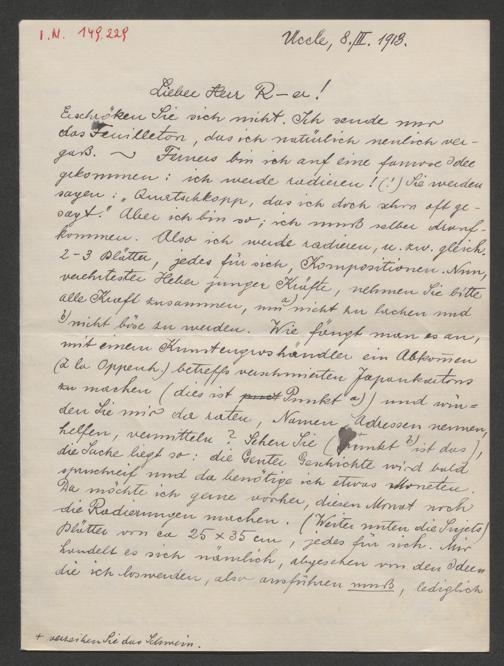 I.N. 149.229
Uccle, 8./III. 1913.
Lieber Herr R–er!
Erschröken Sie sich nicht. Ich sende nur
das Feuilleton, das ich natürlich neulich ver-
gaß. ~ Ferners bin ich auf eine famose Idee
gekommen: ich werde radieren! (!) Sie werden
sagen: „Quatschkopp, das ich doch schon oft ge-
sagt." Aber ich bin so; ich muß selber drauf-
kommen. Also ich werde radieren, u. zw. gleich
2–3 Blätter, jedes für sich, Kompositionen. Nun,
verehrtester Heber junger Kräfte, nehmen Sie bitte
alle Kraft zusammen, um a) nicht zu lachen und
b) nicht böse zu werden. Wie fängt man es an,
mit einem Kunstengroshändler ein Abkom̅en
(à la Oppenh) betreffs verschmierten Japankartons
zu machen (dies ist Punkt a)) und wür-
den Sie mir da raten, Namen, Adressen nennen,
helfen, vermitteln? Sehen Sie (Punkt b) ist das),
die Sache liegt so: die Genter Geschichte wird bald
spruchreif und da benötige ich etwas Moneten.
Da möchte ich gerne vorher, diesen Monat noch
die Radierungen machen. (Weiter unten die Sujets)
Blätter von ca 25 × 35 cm, jedes für sich. Mir
handelt es sich nämlich, abgesehen von den Ideen
die ich loswerden, also ausführen muß, lediglich
+ verzeihen Sie das Schwein.